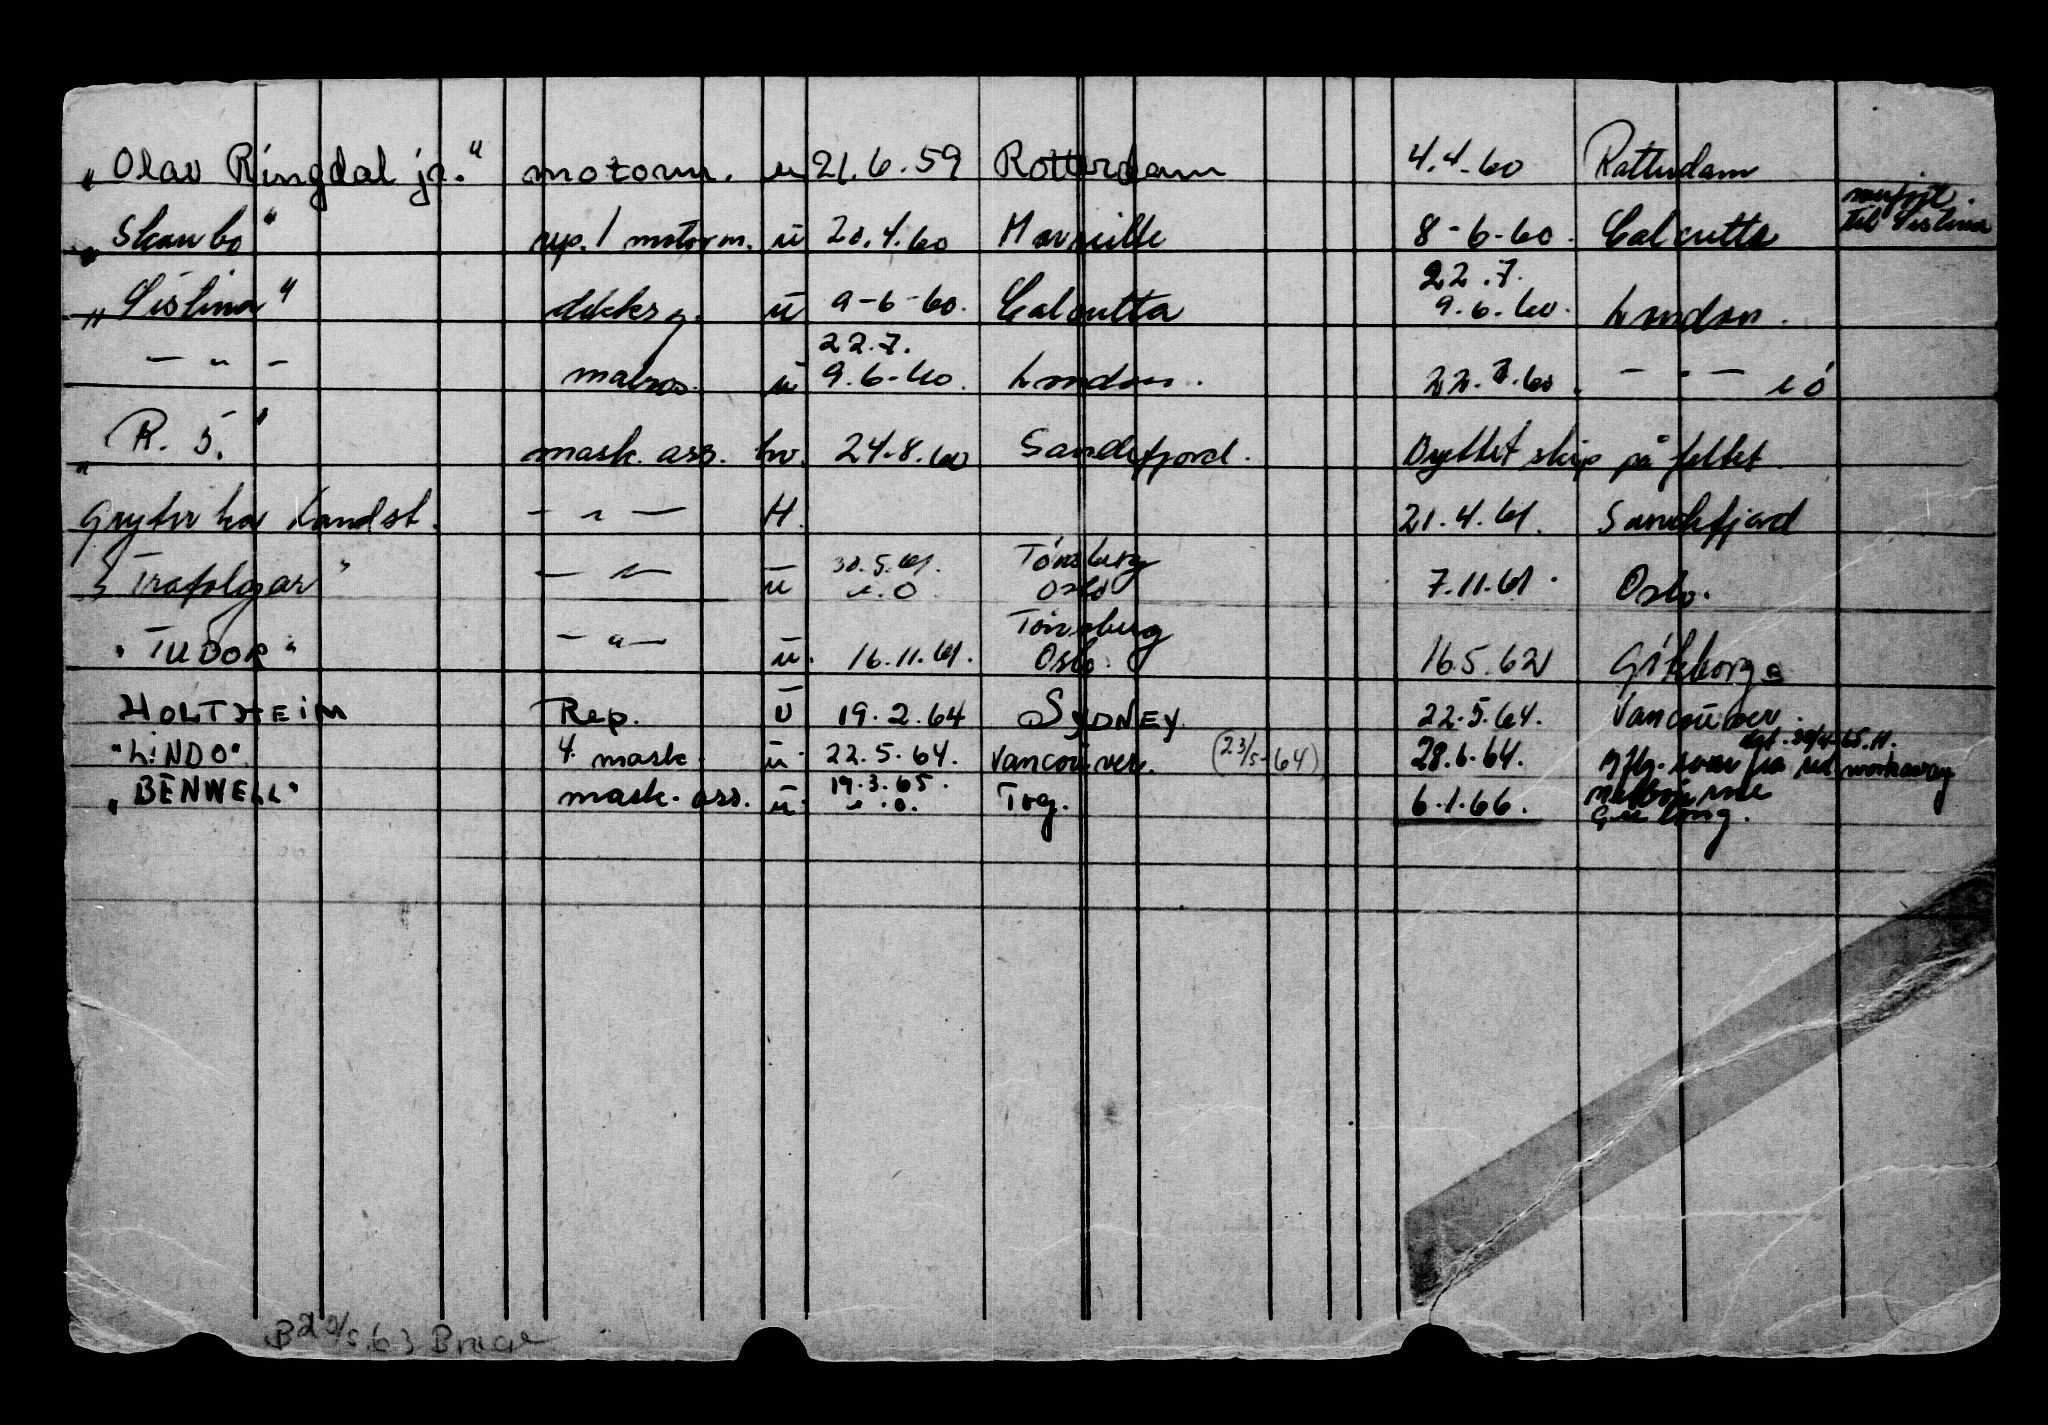 "Olav Ringdal jr." motorm. u 21.6.59 Rotterdam 4.4.60 Rotterdam
"Skaubo" rep./motorm. u 20.4.60 Marseille 8-6-60. Calcutta til Sistina
22.7.
"Sistina" dekksg. u 9-6-60. Calcutta 9.6.60. London.
22.7.
— " — matros. u 9.6-60. London. 22.7.60. — " — e ó
"R. 5." mask. ass. hv. 24.8.60 Sandefjord. Byttet skip på feltet.
Gryter hos Kondst. — " — H. 21.4.61. Sandefjord
30.5.61. Tønsberg
"Trafalgar" — " — u e.O Oslo 7.11.61. Oslo.
Tønsberg
"TUDOR" — " — u. 16.11.61. Oslo. 16.5.62 Gøteborg
HOLTHEIM Rep. U 19.2.64 SYDNEY. 22.5.64. Vancouver.
"LINDO" 4. mask. u. 22.5.64. Vancouver. (23/5-64) 28.6.64. workaway
19.3.65. Melbourne
"BENWELL" mask. ass. u. e.o. Tog. 6.1.66. Geelong.
B 20/5.63